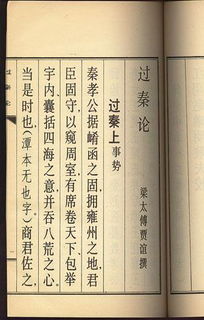 过秦论
梁太傅贾谊撰
过秦上事势
秦孝公据崤函之固拥雍州之地君
臣固守以窥周室有席卷天下包举
宇内囊括四海之意并吞八荒之心
当是时也（潭本无也字）商君佐之